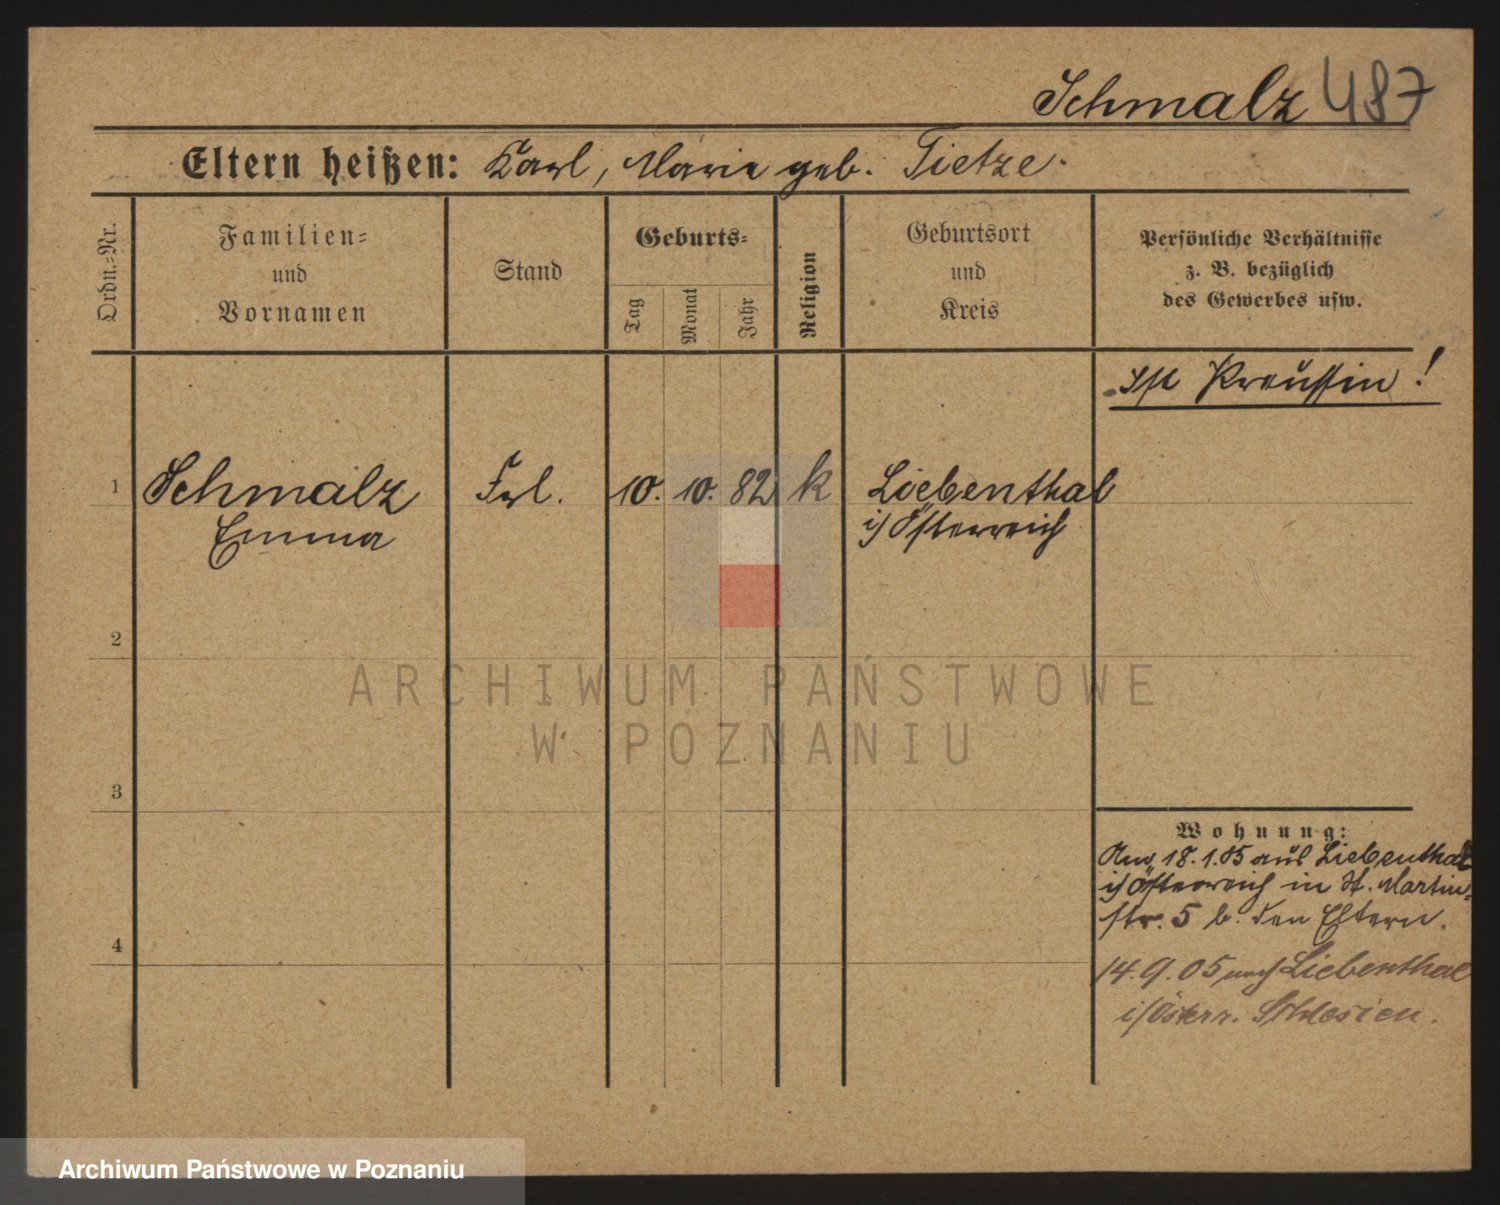 Schmalz 487
Eltern heißen: Karl, Marie geb. Tietze.
Ordn.-Nr.
Familien-
und
Vornamen
Stand
Geburts-
Tag
Monat
Jahr
Religion
Geburtsort
und
Kreis
Persönliche Verhältnisse
z. B. bezüglich
des Gewerbes usw.
ist Preussin!
1 Schmalz Frl. 10. 10. 82 k Liebenthal
Emma i/ Österreich
2
3
4
Wohnung:
Am 18.1.05 aus Liebenthal
i/ Österreich in St. Martin-
str. 5 b. den Eltern.
14.9.05 nach Liebenthal
i/Österr. Schlesien.
ARCHIWUM PAŃSTWOWE
W POZNANIU
Archiwum Państwowe w Poznaniu